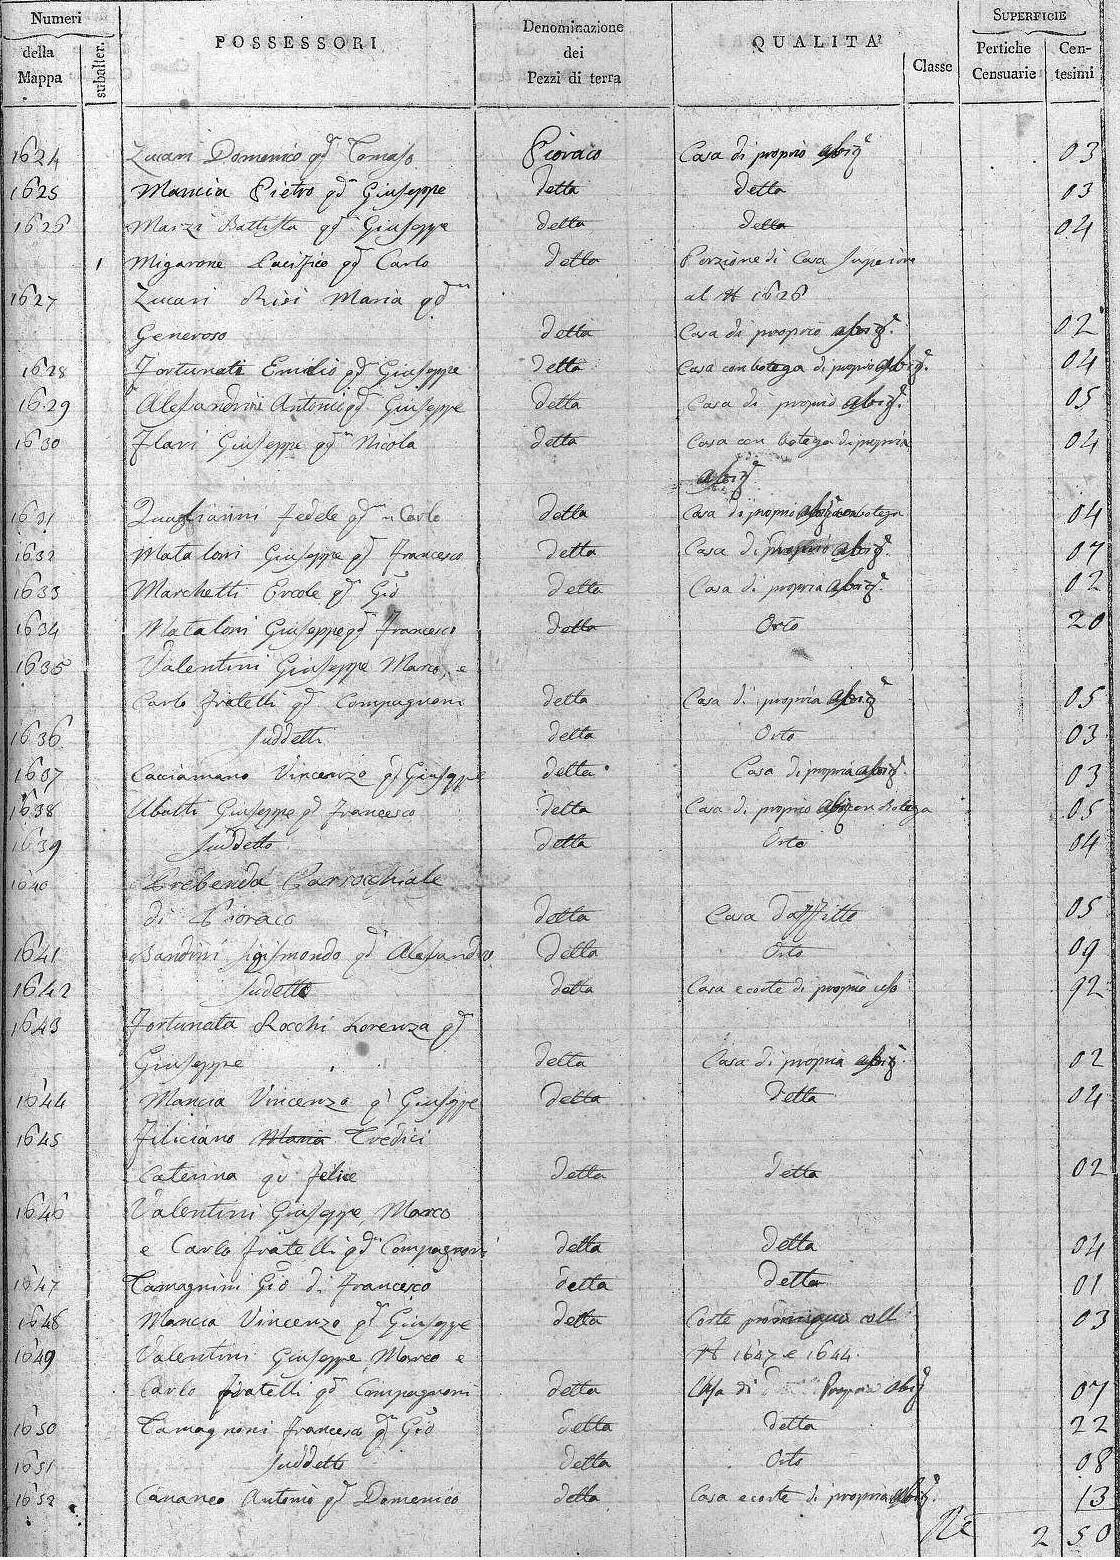 Numeri della Mappa subalter. POSSESSORI Denominazione dei Pezzi di terra QUALITA' Classe SUPERFICIE Pertiche Censuarie Centesimi
1624 Zucari Domenico qd Tomaso Pioraco Casa di proprio abiz 03
1625 Mancia Pietro qdm Giuseppe detta detta 03
1626 Marzi Battista qd Giuseppe detta detta 04
1 Migarone Pacifico qd Carlo detta Porzione di Casa Superiore
1627 Zucari Risi Maria qdm al N 1626
Generoso detta Casa di proprio abiz. 02
1628 Fortunati Emilio qd Giuseppe detta Casa con botega di proprio abiz. 04
1629 Alessandrini Antonio qd Giuseppe detta Casa di proprio abiz. 05
1630 Flavi Giuseppe qdm Nicola detta Casa con botega di propria 04
abiz
1631 Quagliarini Fedele qdm Carlo detta Casa di proprio abiz con botega 04
1632 Mataloni Giuseppe qd Francesco detta Casa di proprio abiz. 07
1633 Marchetti Ercole qd Gio detta Casa di propria abiz. 02
1634 Mataloni Giuseppe qd Francesco detta Orto 20
1635 Valentini Giuseppe Marco, e
Carlo fratelli qd Compagnoni detta Casa di propria abiz 05
1636 Suddetti detta Orto 03
1637 Cacciamano Vincenzo qd Giuseppe detta Casa di propria abiz. 03
1638 Ubatti Giuseppe qd Francesco detta Casa di proprio abiz con Botega 05
1639 Suddetto detta Orto 04
1640 Prebenda Parrocchiale
di Pioraco detta Casa d'affitto 05
1641 Bandini Sigismondo qd Alesandro detta Orto 09
1642 Sudetto detta Casa e corte di proprio uso 92
1643 Fortunata Rocchi Lorenza qd
Giuseppe detta Casa di propria abiz. 02
1644 Mancia Vincenzo qd Giuseppe detta detta 04
1645 Filiciano Maria Tredici
Caterina qd Felice detta detta 02
1646 Valentini Giuseppe, Marco
e Carlo fratelli qdm Compagnoni detta detta 04
1647 Tamagnini Gio di Francesco detta detta 01
1648 Mancia Vincenzo qd Giuseppe detta Corte promiscua coll 03
1649 Valentini Giuseppe Marco e N 1647 e 1644.
Carlo fratelli qd Compagnoni detta Casa di Propria abiz 07
1650 Tamagnini Francesco qdm Gio detta detta 22
1651 Suddetto detta Orto 08
1652 Cananeo Antonio qd Domenico detta Casa e corte di propria abiz. 13
2 50